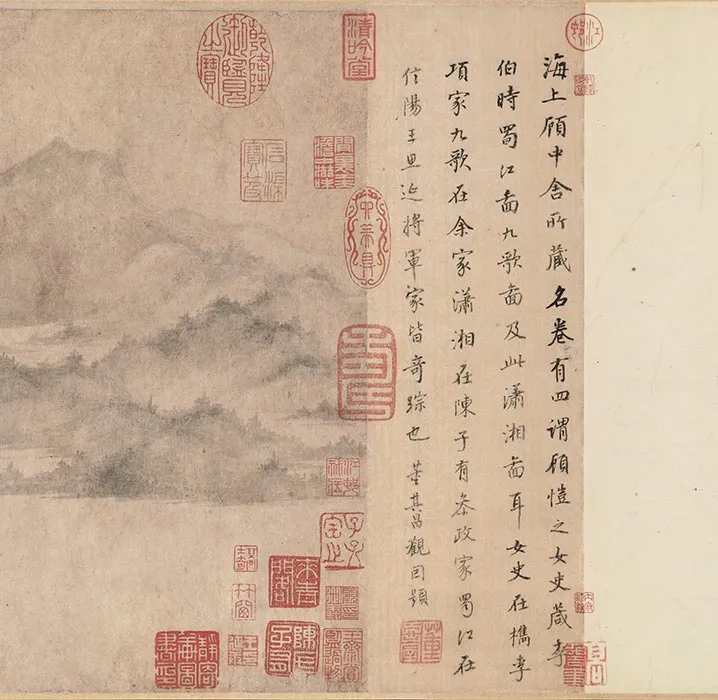 江邨
海上顧中舍所藏名卷有四謂顧愷之女史葴李
伯時蜀江啚九歌啚及此瀟湘啚耳女史在檇李
項家九歌在余家瀟湘在陳子有叅政家蜀江在
信陽王思延將軍家皆奇踪也 董其昌觀因題
清吟堂
乾隆御覽之寶
石渠寶笈